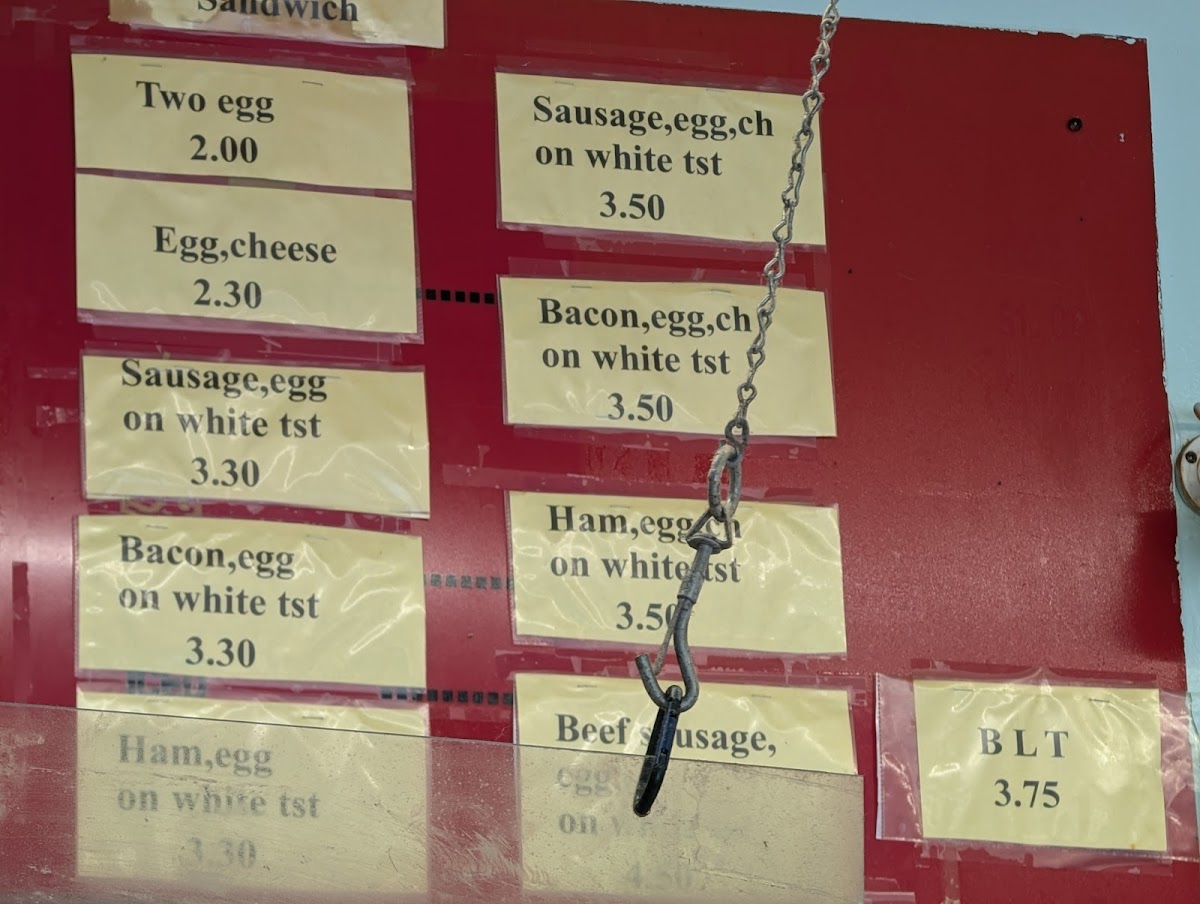 Sandwich
Two egg
2.00
Egg,cheese
2.30
Sausage,egg
on white tst
3.30
Bacon,egg
on white tst
3.30
Ham,egg
on white tst
3.30
Sausage,egg,ch
on white tst
3.50
Bacon,egg,ch
on white tst
3.50
Ham,egg,ch
on white tst
3.50
Beef sausage,
egg
on
4.50
B L T
3.75